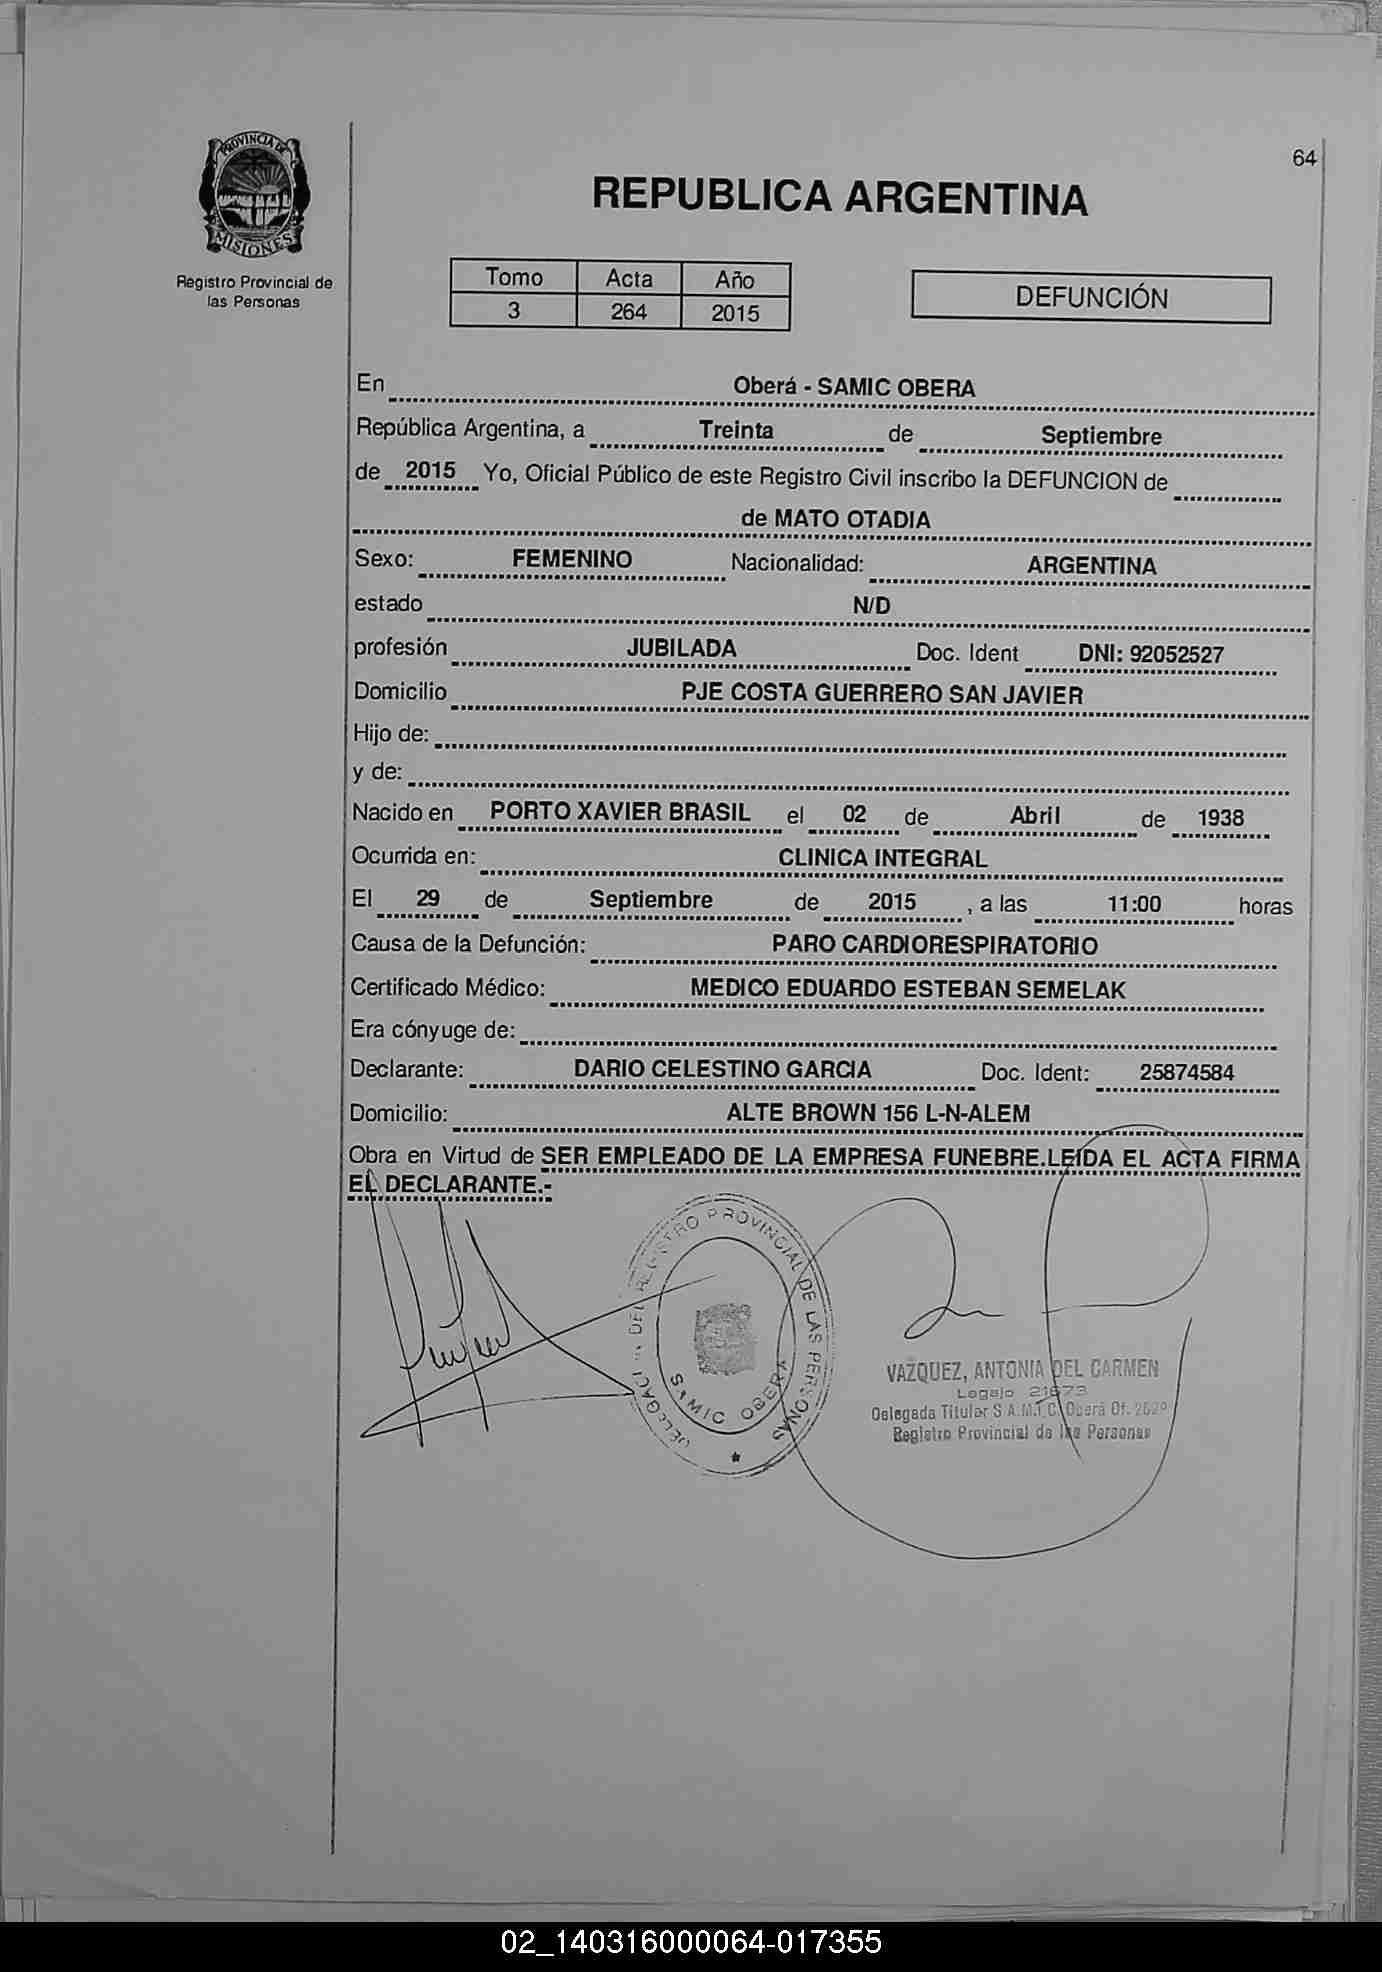 PROVINCIA DE
MISIONES
Registro Provincial de
las Personas
64
REPUBLICA ARGENTINA
Tomo Acta Año
3 264 2015
DEFUNCIÓN
En Oberá - SAMIC OBERA
República Argentina, a Treinta de Septiembre
de 2015 Yo, Oficial Público de este Registro Civil inscribo la DEFUNCION de
de MATO OTADIA
Sexo: FEMENINO Nacionalidad: ARGENTINA
estado N/D
profesión JUBILADA Doc. Ident DNI: 92052527
Domicilio PJE COSTA GUERRERO SAN JAVIER
Hijo de:
y de:
Nacido en PORTO XAVIER BRASIL el 02 de Abril de 1938
Ocurrida en: CLINICA INTEGRAL
El 29 de Septiembre de 2015 , a las 11:00 horas
Causa de la Defunción: PARO CARDIORESPIRATORIO
Certificado Médico: MEDICO EDUARDO ESTEBAN SEMELAK
Era cónyuge de:
Declarante: DARIO CELESTINO GARCIA Doc. Ident: 25874584
Domicilio: ALTE BROWN 156 L-N-ALEM
Obra en Virtud de SER EMPLEADO DE LA EMPRESA FUNEBRE.LEIDA EL ACTA FIRMA
EL DECLARANTE.-
DEL REGISTRO PROVINCIAL DE LAS PERSONAS
SAMIC OBERA
VAZQUEZ, ANTONIA DEL CARMEN
Legajo 21673
Delegada Titular S.A.M.I.C. Oberá Of.
Registro Provincial de las Personas
02_140316000064-017355